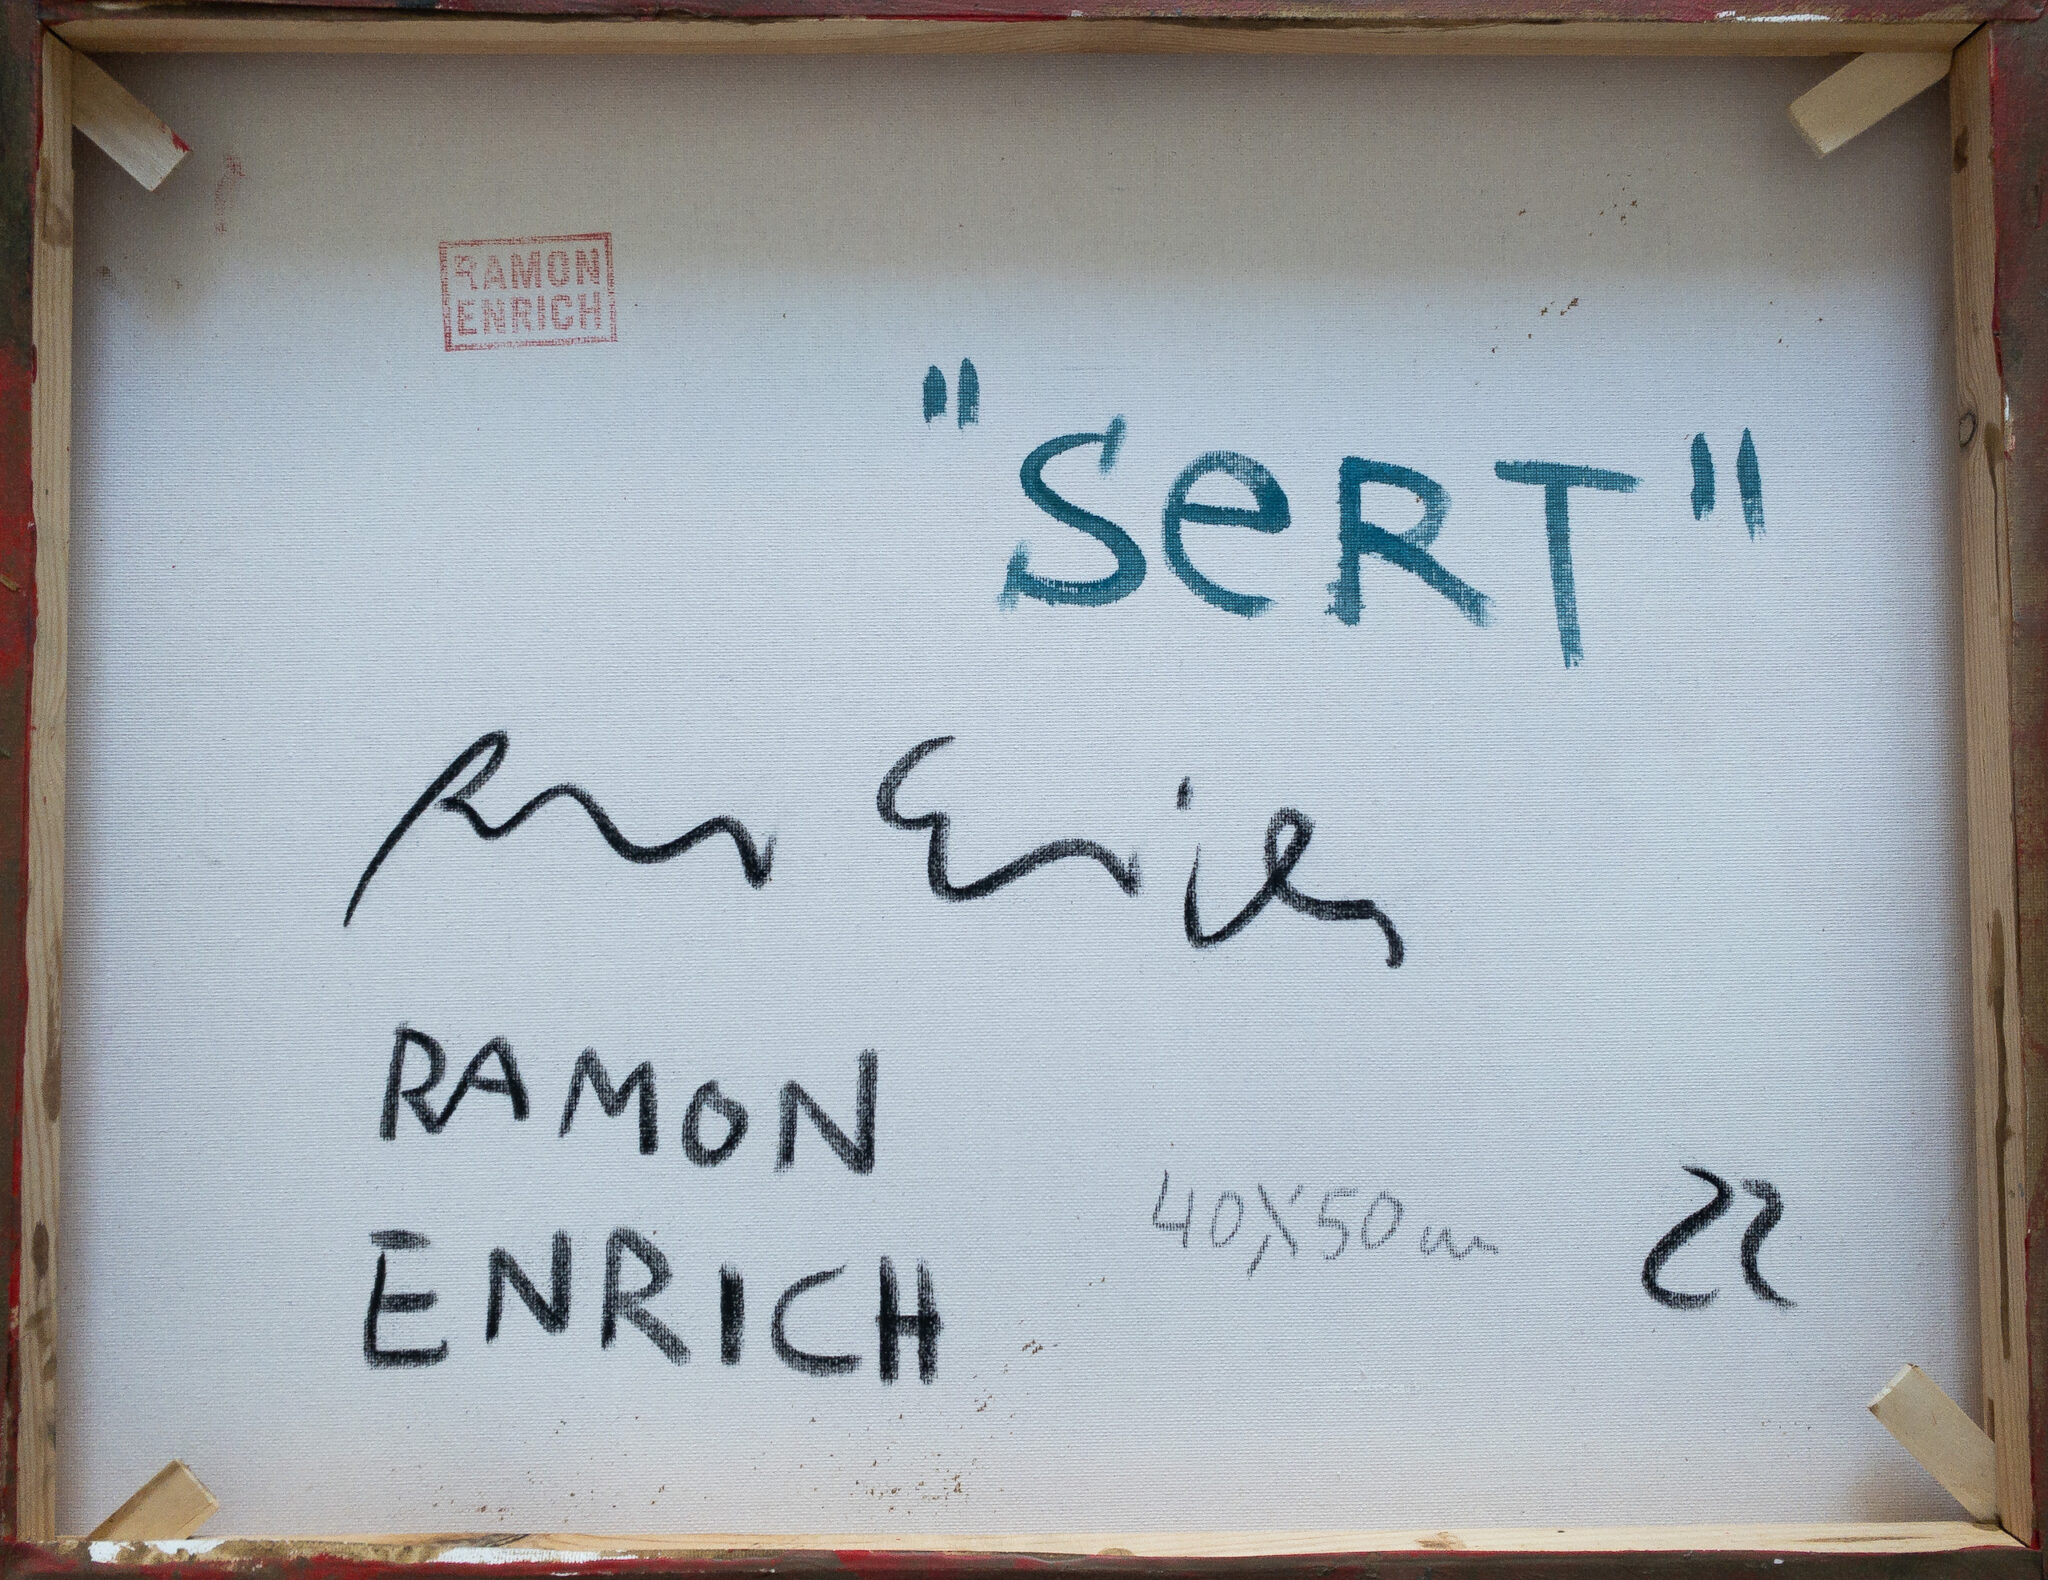 RAMON
ENRICH
"SeRT"
Ramon Enrich
RAMON
ENRICH
40X50cm
22